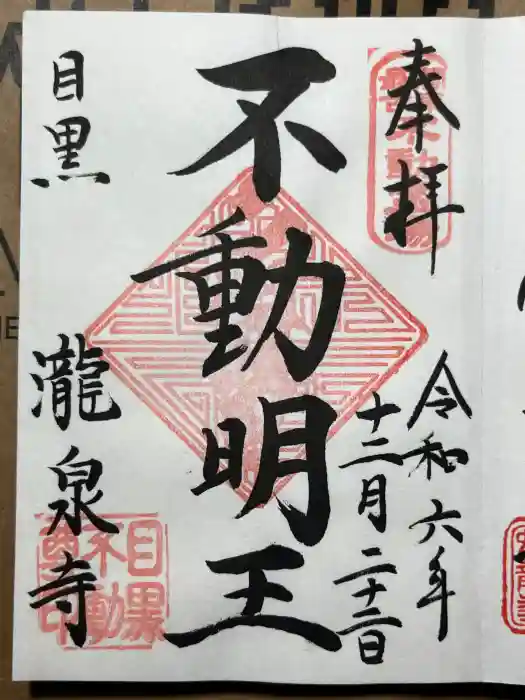 奉拝
令和六年
十二月二十三日
不動明王
目黒
瀧泉寺
目黒
不動